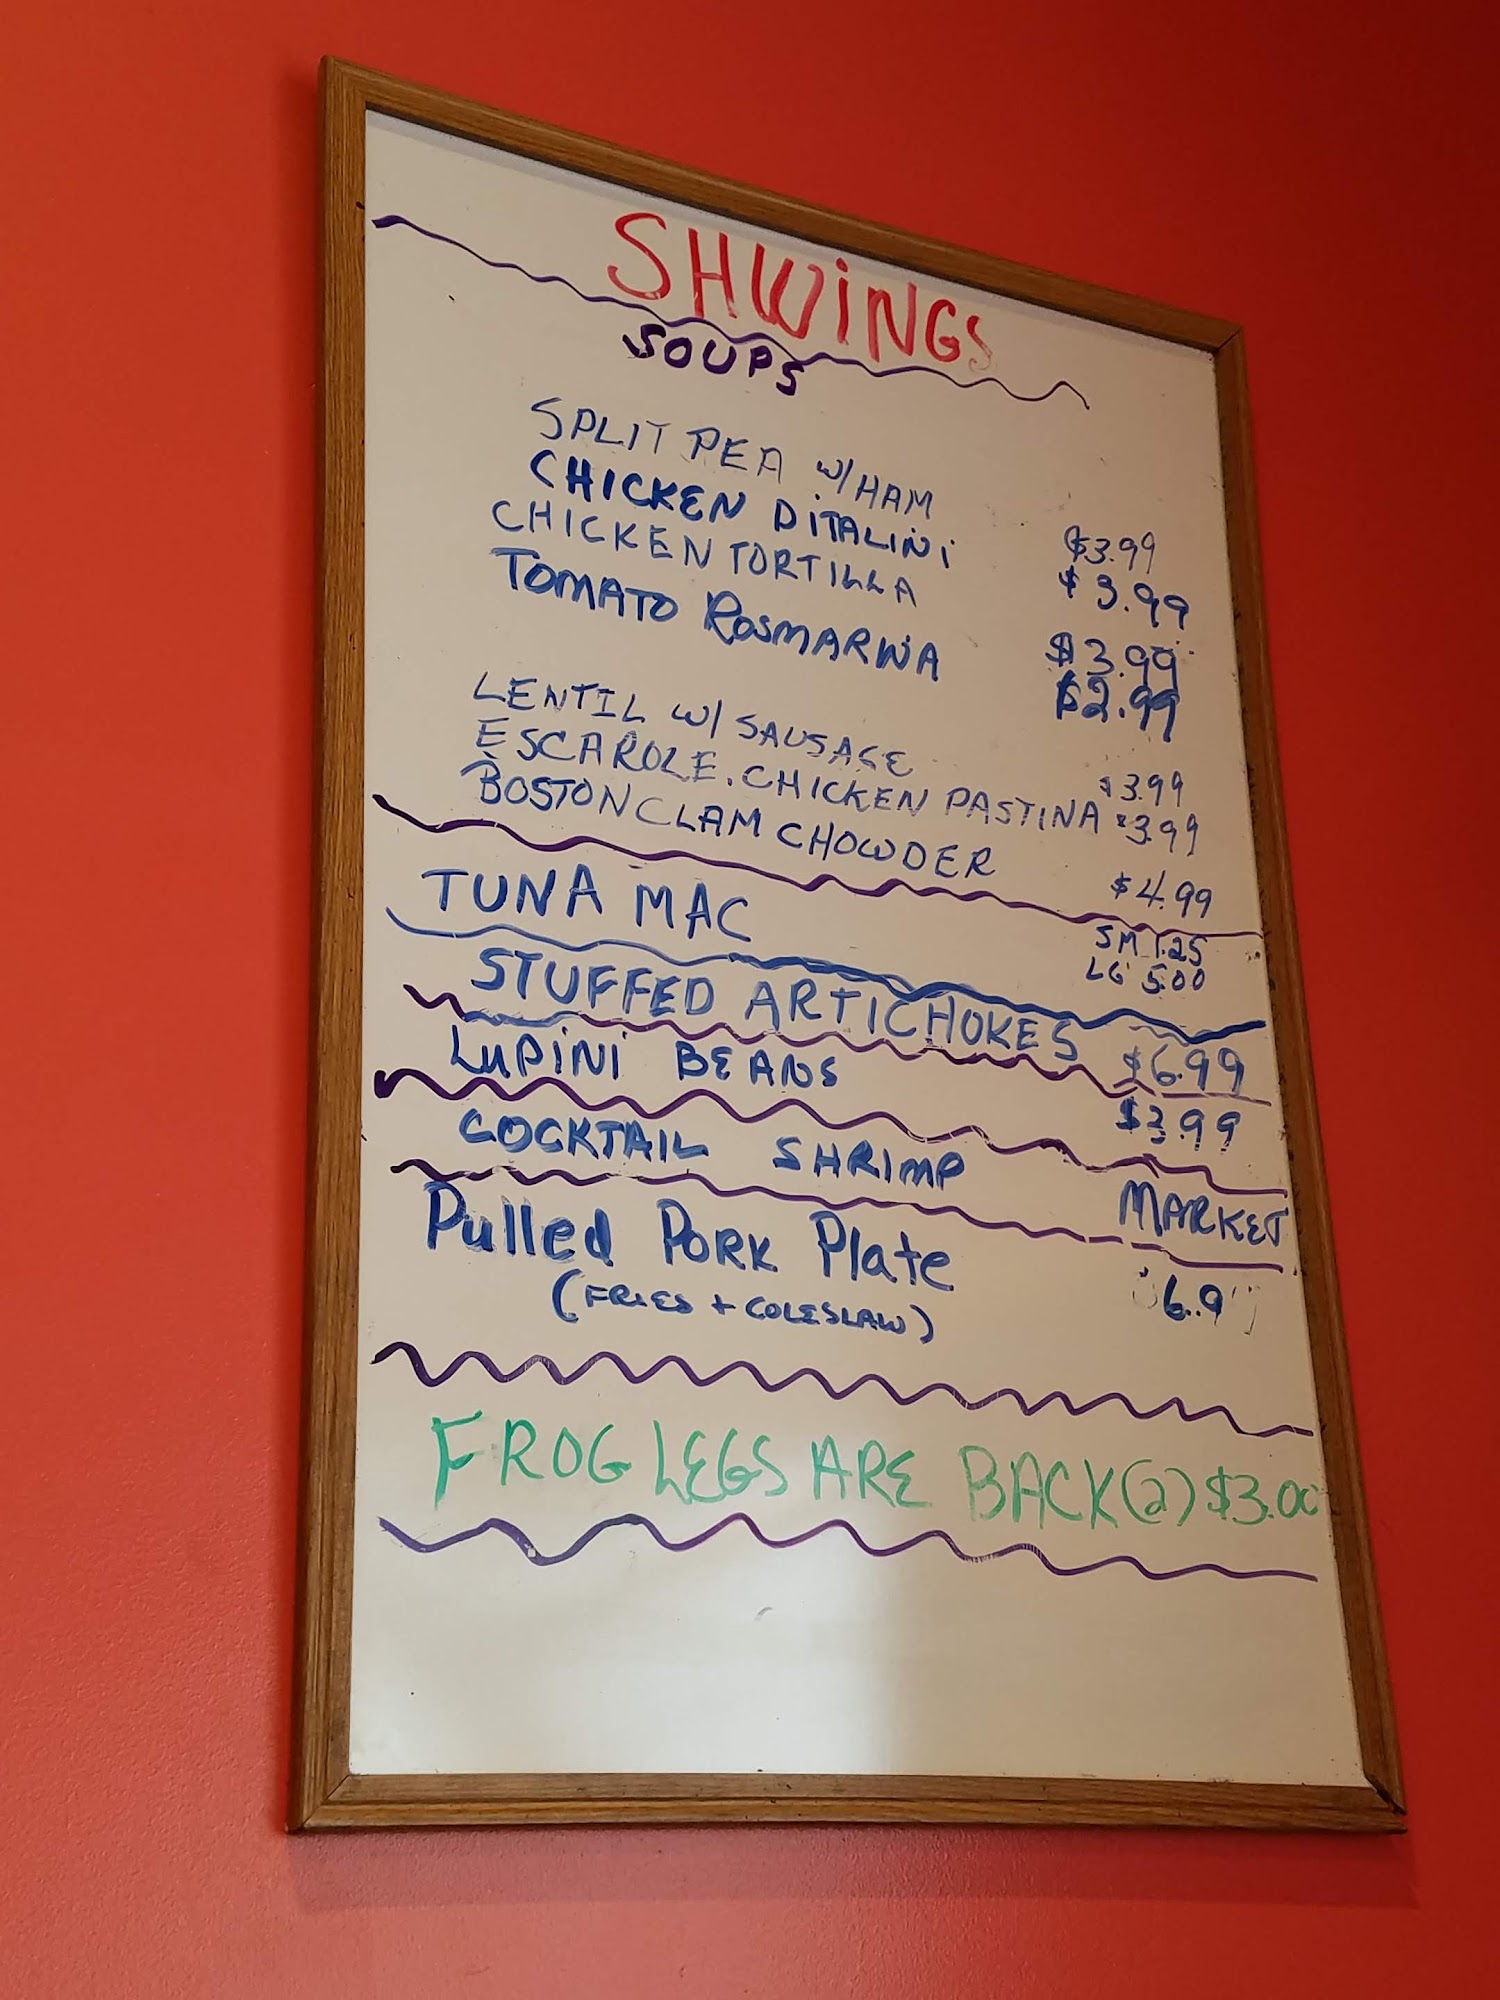 SHWiNGS
SOUPS
SPLIT PEA W/HAM $3.99
CHICKEN DiTALiNi $3.99
CHICKEN TORTILLA $3.99
TOMATO ROSMARINA $2.99
LENTIL W/ SAUSAGE $3.99
ESCAROLE, CHICKEN PASTINA $3.99
BOSTON CLAM CHOWDER $4.99
TUNA MAC SM 1.25
LG 5.00
STUFFED ARTICHOKES $6.99
LUPINI BEANS $3.99
COCKTAIL SHRIMP MARKET
Pulled PORK Plate 6.9
(FRIES + COLESLAW)
FROG LEGS ARE BACK (2) $3.00